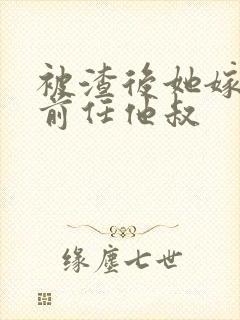 被渣後她嫁
前任他叔
缘塵七世